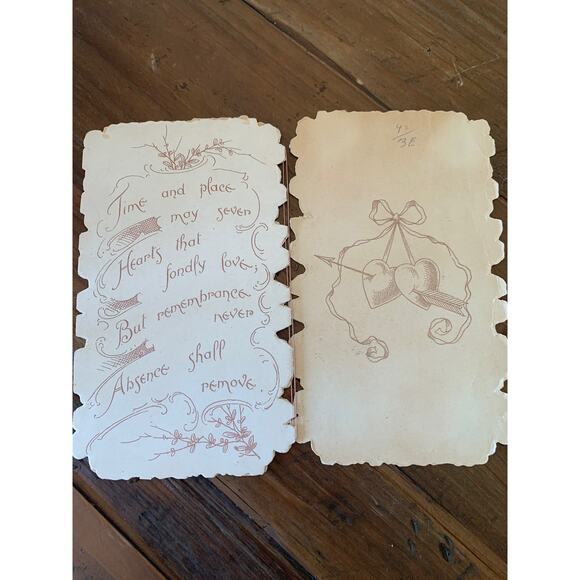 Time and place
may sever
Hearts that
fondly love;
But remembrance
never
Absence shall
remove.